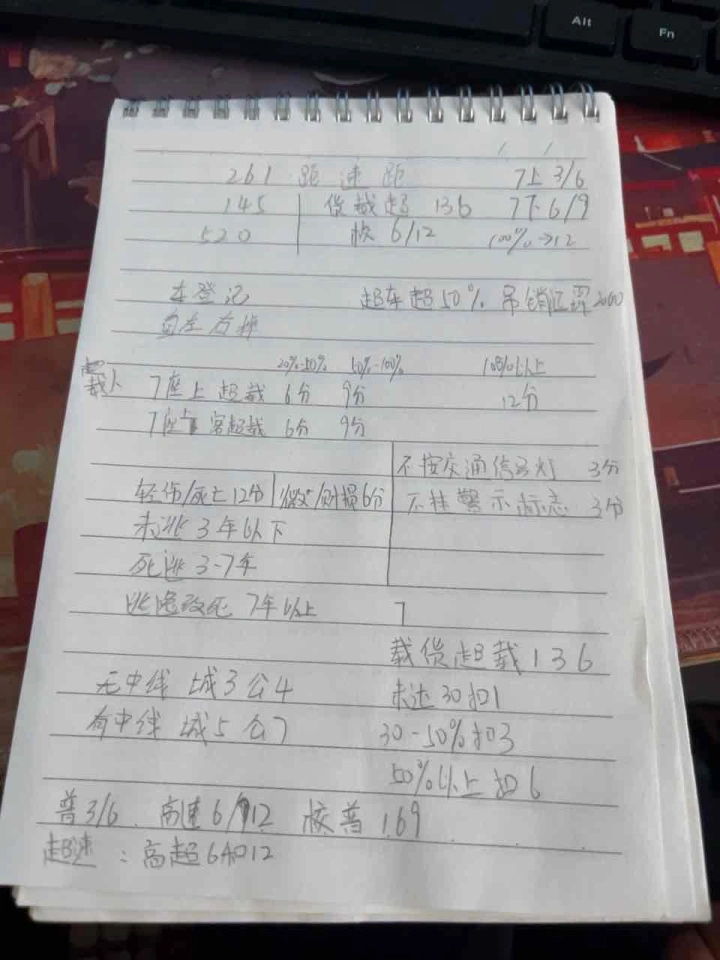 Alt
Fn
261 距 速 距 7上 3/6
145 货载超 136 7下 6/9
520 校 6/12 100%→12
车登记 超车超50% 吊销 2000
自左右
超载人 20%-50% 50%-100% 100%以上
7座上超载 6分 9分 12分
7座 客超载 6分 9分
不按交通信号灯 3分
轻伤/死亡12分 /财损6分 不挂警示标志 3分
未逃3年以下
死逃3-7年
逃逸致死 7年以上 7
载货超载 1 3 6
无中线 城3公4 未达30扣1
有中线 城5公7 30-50%扣3
50%以上扣6
普3/6 高速6/12 校普169
超速：高超6和12